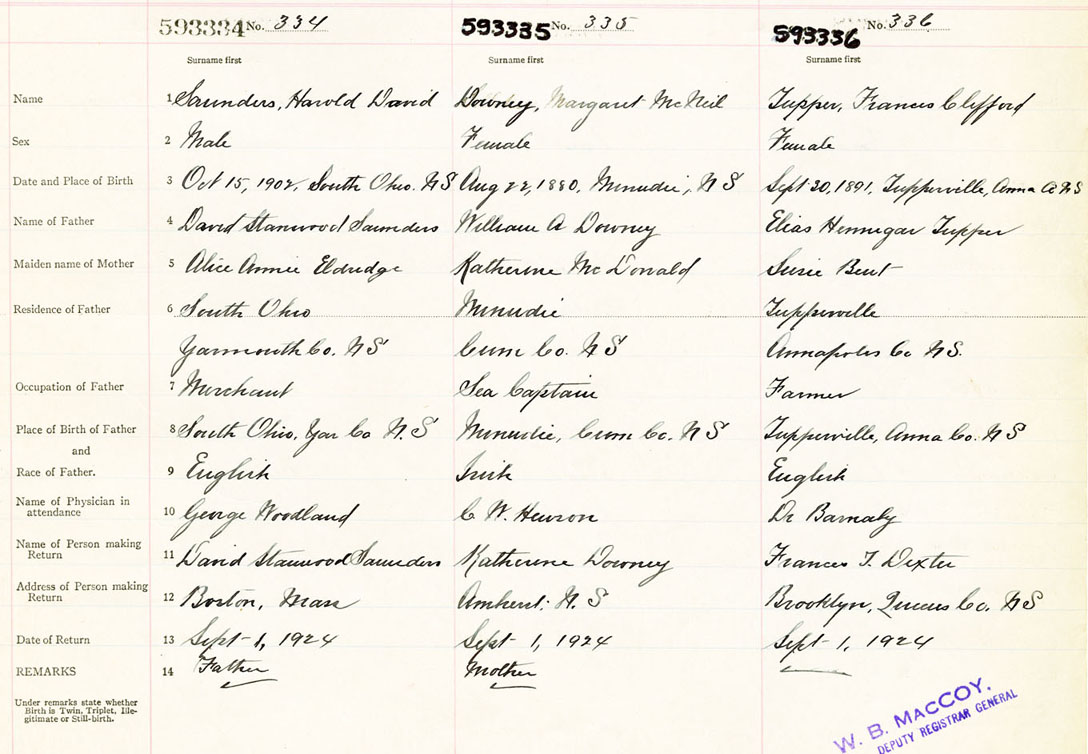 593334 No. 334 593335 No. 335 593336 No. 336
Surname first Surname first Surname first
Name 1 Saunders, Harold David Downey, Margaret McNeil Tupper, Frances Clifford
Sex 2 Male Female Female
Date and Place of Birth 3 Oct 15, 1902, South Ohio. N S Aug 22, 1880, Minudie, N S Sept 30, 1891, Tupperville, Anna Co N S
Name of Father 4 David Stanwood Saunders William A Downey Elias Hennigar Tupper
Maiden name of Mother 5 Alice Annie Eldridge Katherine McDonald Susie Bent
Residence of Father 6 South Ohio Minudie Tupperville
Yarmouth Co. N S Cum Co. N S Annapolis Co N S.
Occupation of Father 7 Merchant Sea Captain Farmer
Place of Birth of Father 8 South Ohio, Yar Co N. S Minudie, Cum Co. N S Tupperville, Anna Co. N S
and
Race of Father. 9 English Irish English
Name of Physician in
attendance 10 George Woodland C W. Hewson Dr Barnaby
Name of Person making
Return 11 David Stanwood Saunders Katherine Downey Frances T. Dexter
Address of Person making
Return 12 Boston, Mass Amherst, N. S Brooklyn, Queens Co. N S
Date of Return 13 Sept 1, 1924 Sept 1, 1924 Sept 1, 1924
REMARKS 14 Father Mother
Under remarks state whether
Birth is Twin, Triplet, Ille-
gitimate or Still-birth.
W. B. MACCOY.
DEPUTY REGISTRAR GENERAL